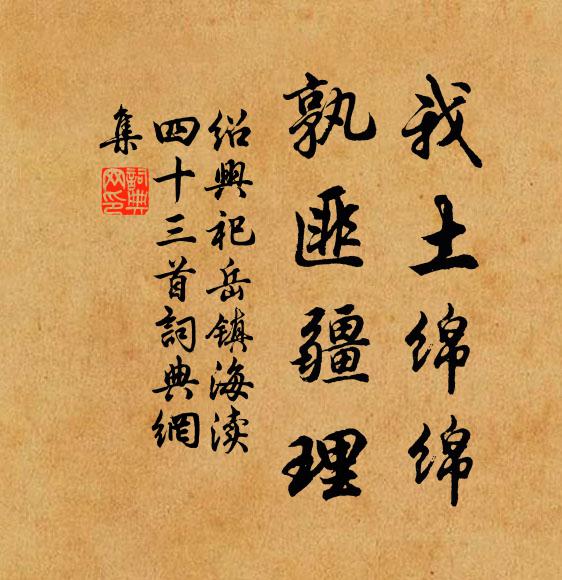 我土绵绵
孰匪疆理
绍興祀岳镇海渎
四十三首詞典網
集
詞典網印